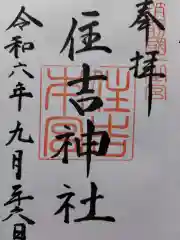 奉拝
住吉神社
令和六年九月二十六日